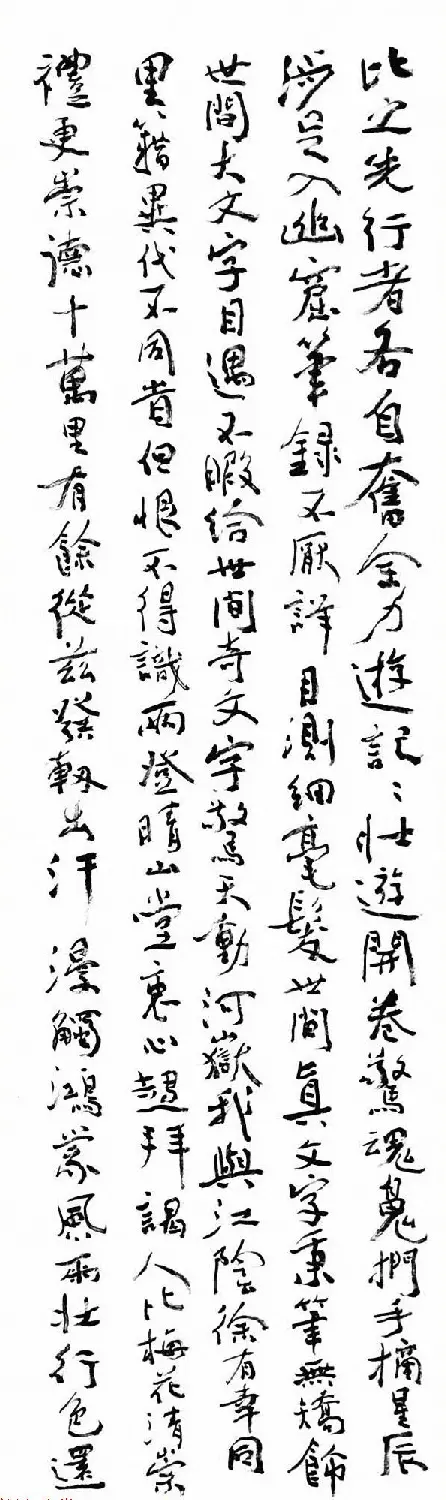 比之先行者各自奮全力遊記〻壯遊開卷驚魂魄捫手摘星辰
涉足入幽窟筆錄不厭詳目測細毫髮世間真文字秉筆無矯飾
世間大文字目遇不暇給世間奇文字驚天動河嶽我與江陰徐有幸同
里籍異代不同省但恨不得識兩登晴山堂裏心趨拜謁人比梅花清崇
禮更崇德十萬里有餘從茲發軔出汗漫觸鴻蒙風雨壯行色還